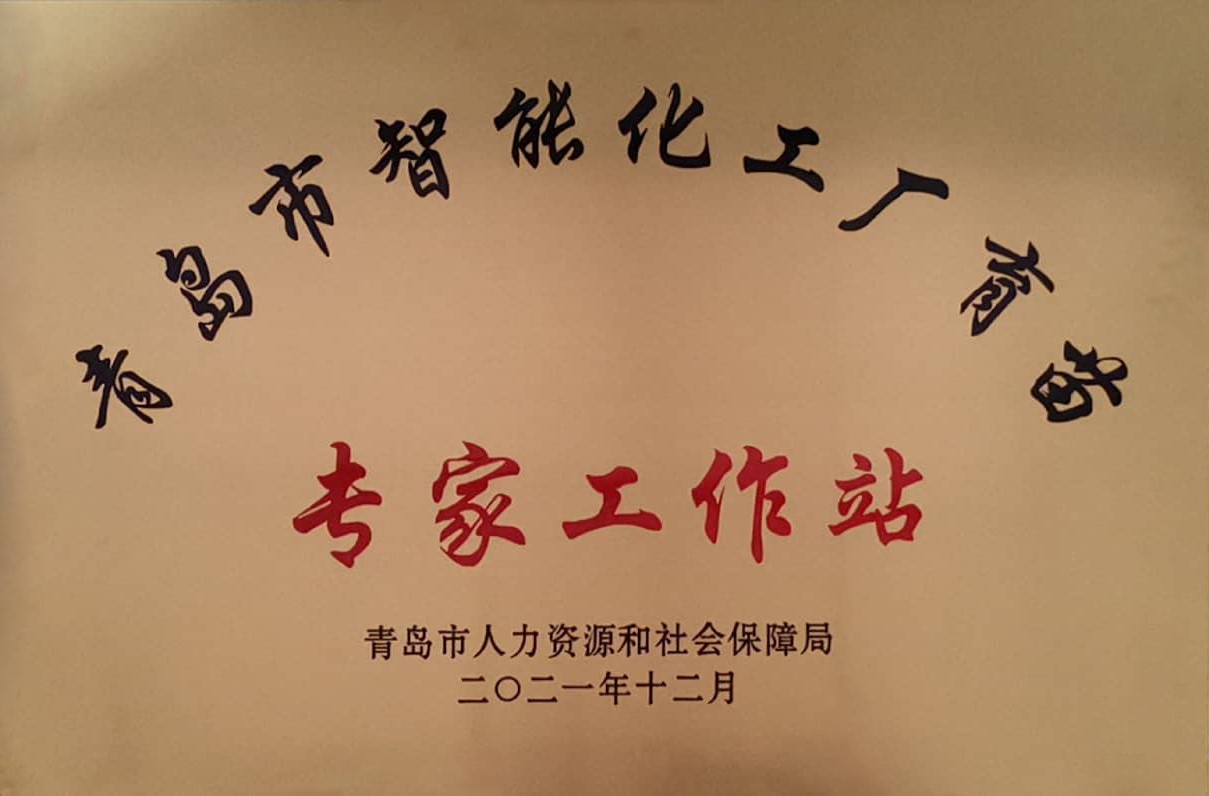 青岛市智能化工厂育苗
专家工作站
青岛市人力资源和社会保障局
二〇二一年十二月